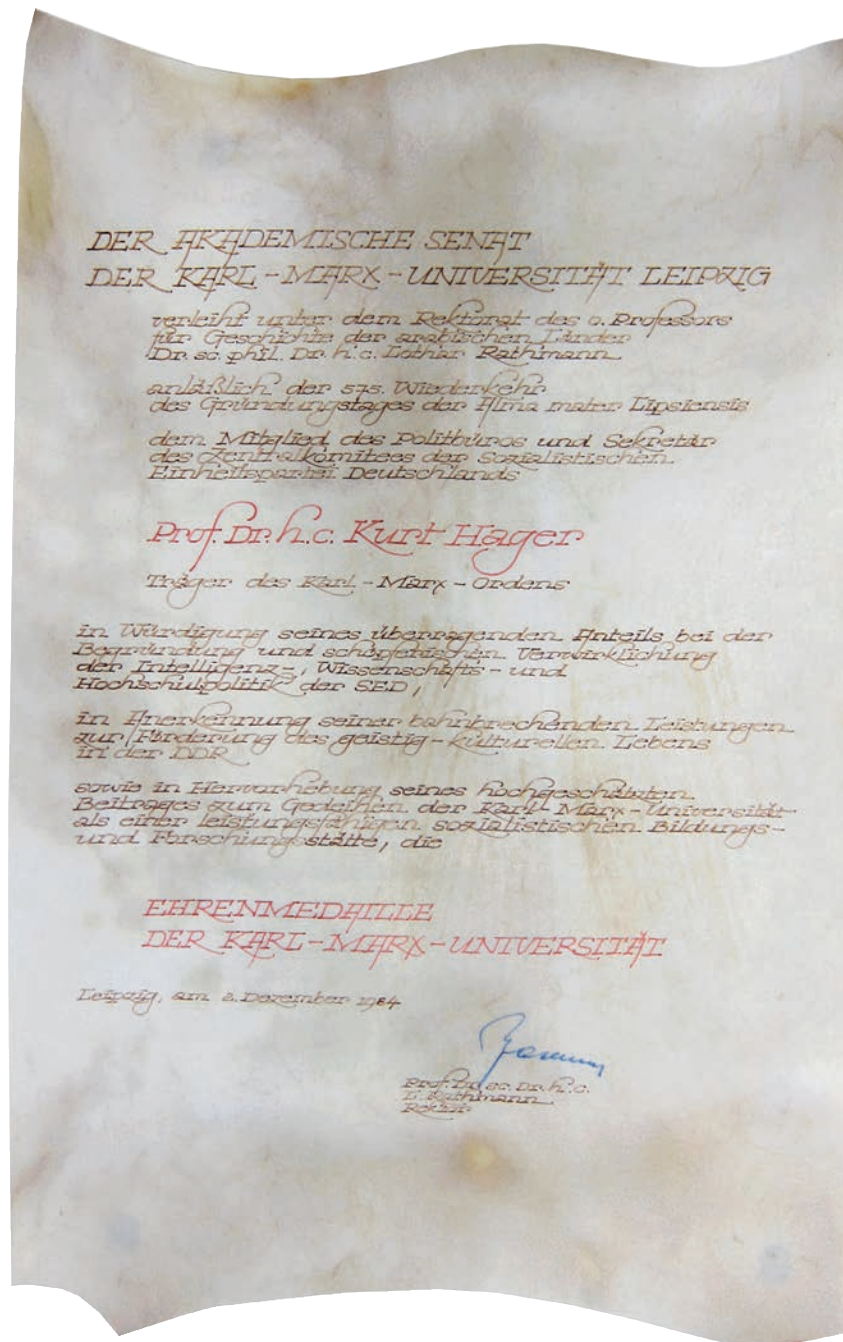 DER AKADEMISCHE SENAT
DER KARL-MARX-UNIVERSITÄT LEIPZIG
verleiht unter dem Rektorat des o. Professors
für Geschichte der arabischen Länder
Dr. sc. phil. Dr. h. c. Lothar Rathmann
anläßlich der 575. Wiederkehr
des Gründungstages der Alma mater Lipsiensis
dem Mitglied des Politbüros und Sekretär
des Zentralkomitees der Sozialistischen
Einheitspartei Deutschlands
Prof. Dr. h. c. Kurt Hager
Träger des Karl-Marx-Ordens
in Würdigung seines überragenden Anteils bei der
Begründung und schöpferischen Verwirklichung
der Intelligenz-, Wissenschafts- und
Hochschulpolitik der SED,
in Anerkennung seiner bahnbrechenden Leistungen
zur Förderung des geistig-kulturellen Lebens
in der DDR
sowie in Hervorhebung seines hochgeschätzten
Beitrages zum Gedeihen der Karl-Marx-Universität
als einer leistungsfähigen sozialistischen Bildungs-
und Forschungsstätte, die
EHRENMEDAILLE
DER KARL-MARX-UNIVERSITÄT
Leipzig, am 2. Dezember 1984
Prof. Dr. sc. Dr. h. c.
L. Rathmann
Rektor